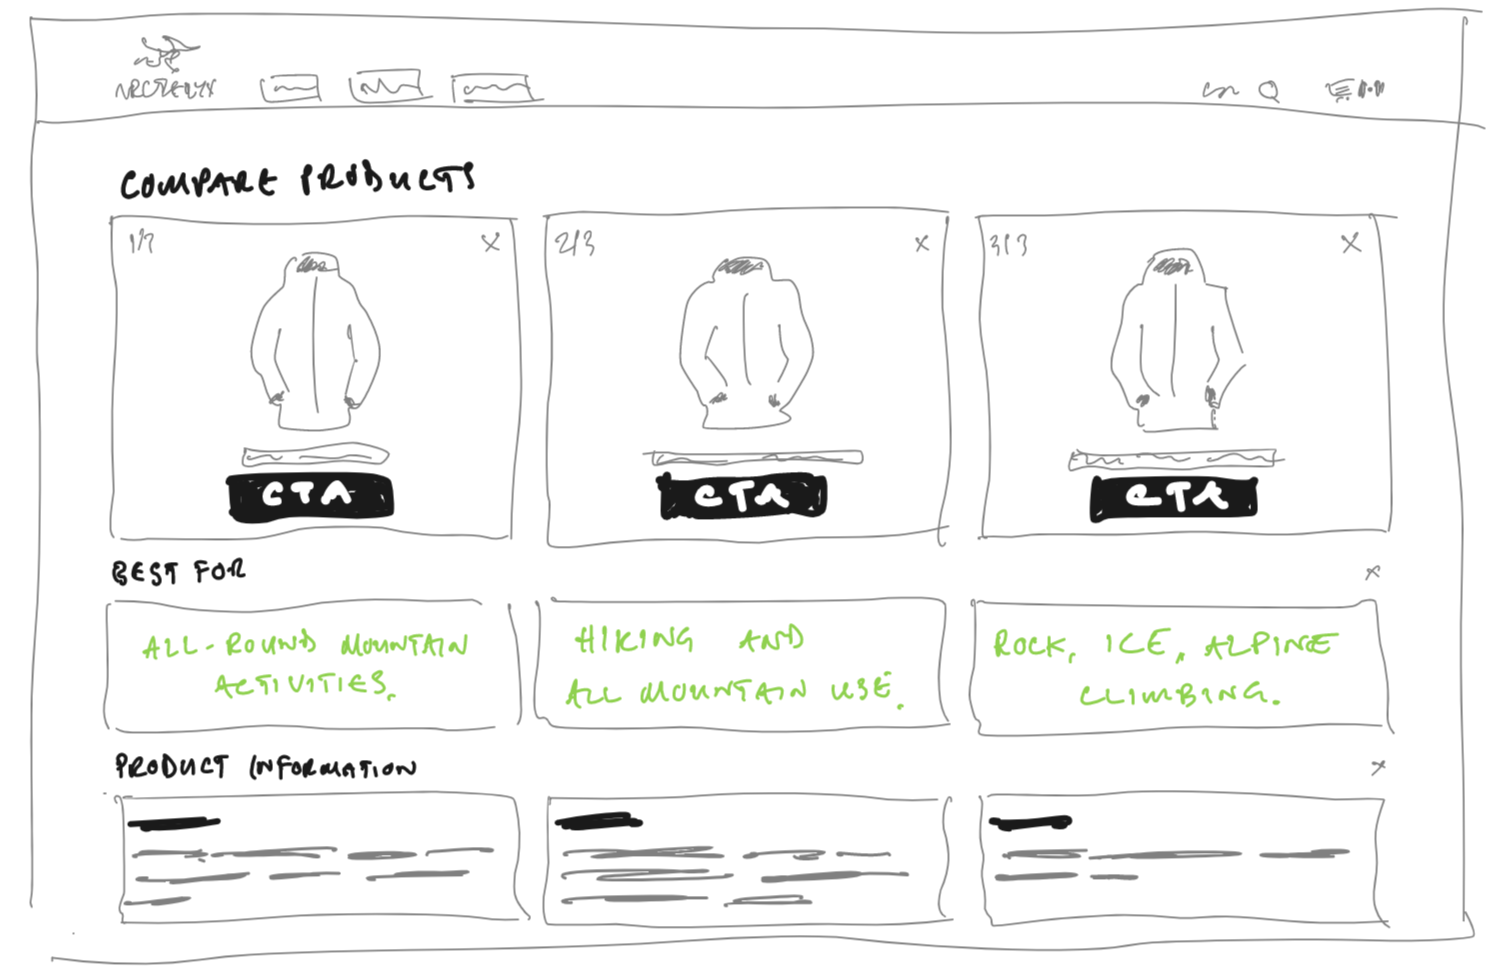 COMPARE PRODUCTS
1/3 X 2/3 X 3/3 X
CTA CTA CTA
BEST FOR X
ALL-ROUND MOUNTAIN
ACTIVITIES.
HIKING AND
ALL MOUNTAIN USE.
ROCK, ICE, ALPINE
CLIMBING.
PRODUCT INFORMATION X